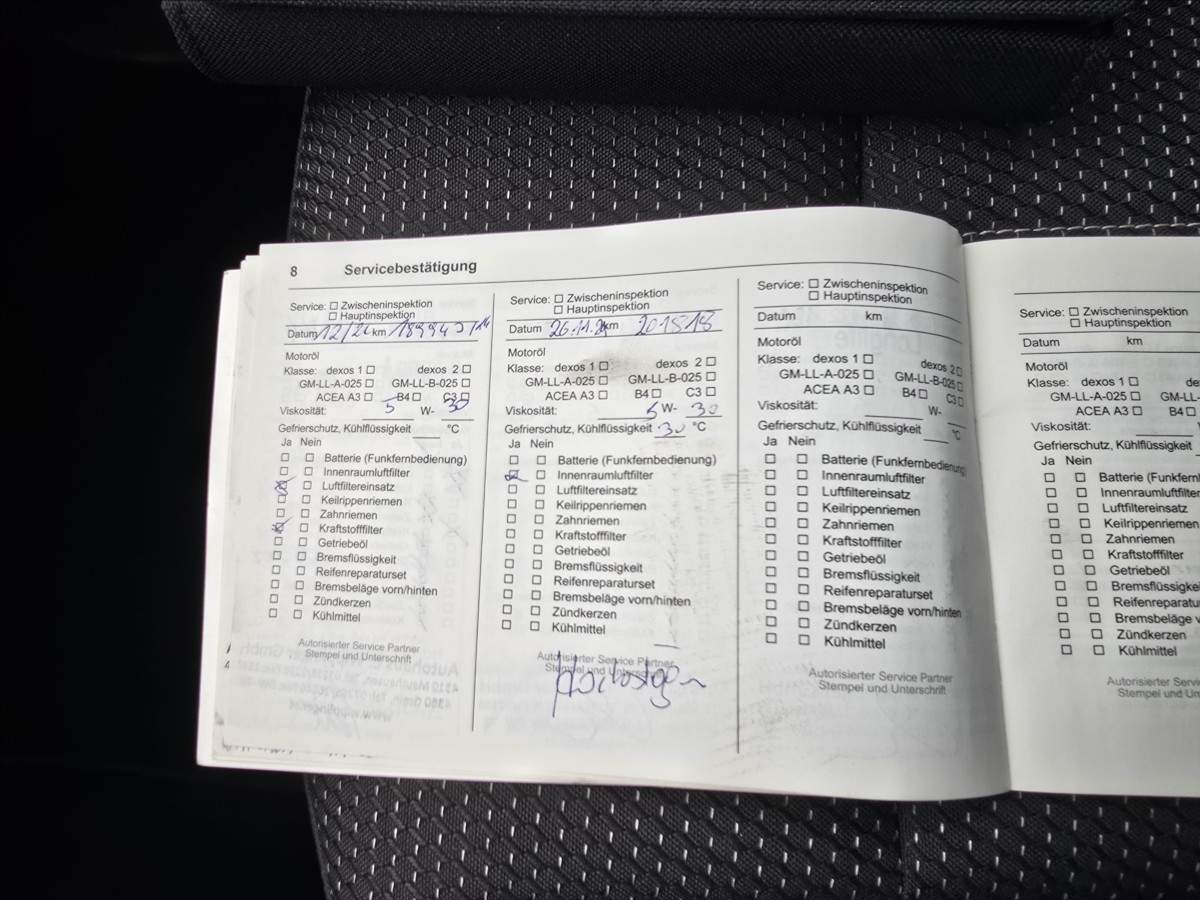 8 Servicebestätigung
Service: ☐ Zwischeninspektion
☐ Hauptinspektion
Datum km
Motoröl
Klasse: dexos 1 ☐ dexos 2 ☐
GM-LL-A-025 ☐ GM-LL-B-025 ☐
ACEA A3 ☐ B4 ☐ C3 ☐
Viskosität: 5 W- 30
Gefrierschutz, Kühlflüssigkeit °C
Ja Nein
Batterie (Funkfernbedienung)
Innenraumluftfilter
Luftfiltereinsatz
Keilrippenriemen
Zahnriemen
Kraftstofffilter
Getriebeöl
Bremsflüssigkeit
Reifenreparaturset
Bremsbeläge vorn/hinten
Zündkerzen
Kühlmittel
Autorisierter Service Partner
Stempel und Unterschrift
Service: ☐ Zwischeninspektion
☐ Hauptinspektion
Datum 26.11.24 km 201518
Motoröl
Klasse: dexos 1 ☐ dexos 2 ☐
GM-LL-A-025 ☐ GM-LL-B-025 ☐
ACEA A3 ☐ B4 ☐ C3 ☐
Viskosität: 5 W- 30
Gefrierschutz, Kühlflüssigkeit 30 °C
Ja Nein
Batterie (Funkfernbedienung)
Innenraumluftfilter
Luftfiltereinsatz
Keilrippenriemen
Zahnriemen
Kraftstofffilter
Getriebeöl
Bremsflüssigkeit
Reifenreparaturset
Bremsbeläge vorn/hinten
Zündkerzen
Kühlmittel
Autorisierter Service Partner
Stempel und Unterschrift
Service: ☐ Zwischeninspektion
☐ Hauptinspektion
Datum km
Motoröl
Klasse: dexos 1 ☐ dexos 2 ☐
GM-LL-A-025 ☐ GM-LL-B-025 ☐
ACEA A3 ☐ B4 ☐ C3 ☐
Viskosität: W-
Gefrierschutz, Kühlflüssigkeit °C
Ja Nein
Batterie (Funkfernbedienung)
Innenraumluftfilter
Luftfiltereinsatz
Keilrippenriemen
Zahnriemen
Kraftstofffilter
Getriebeöl
Bremsflüssigkeit
Reifenreparaturset
Bremsbeläge vorn/hinten
Zündkerzen
Kühlmittel
Autorisierter Service Partner
Stempel und Unterschrift
Service: ☐ Zwischeninspektion
☐ Hauptinspektion
Datum km
Motoröl
Klasse: dexos 1 ☐
GM-LL-A-025 ☐ GM-LL-
ACEA A3 ☐ B4
Viskosität:
Gefrierschutz, Kühlflüssigkeit
Ja Nein
Batterie (Funkfernbed
Innenraumluftfilte
Luftfiltereinsatz
Keilrippenriemen
Zahnriemen
Kraftstofffilter
Getriebeöl
Bremsflüssigke
Reifenreparatu
Bremsbeläge v
Zündkerzen
Kühlmittel
Autorisierter Ser
Stempel und